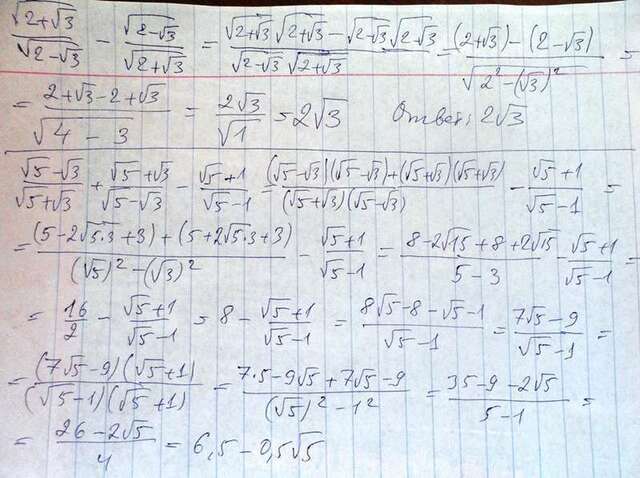 √(2+√3)/√(2-√3) - √(2-√3)/√(2+√3) = (√(2+√3)√(2+√3) - √(2-√3)√(2-√3))/(√(2-√3)√(2+√3)) = ((2+√3)-(2-√3))/√(2²-(√3)²) =
= (2+√3-2+√3)/√(4-3) = 2√3/√1 = 2√3 Ответ: 2√3
(√5-√3)/(√5+√3) + (√5+√3)/(√5-√3) - (√5+1)/(√5-1) = ((√5-√3)(√5-√3)+(√5+√3)(√5+√3))/((√5+√3)(√5-√3)) - (√5+1)/(√5-1) =
= ((5-2√5·3+3)+(5+2√5·3+3))/((√5)²-(√3)²) - (√5+1)/(√5-1) = (8-2√15+8+2√15)/(5-3) - (√5+1)/(√5-1) =
= 16/2 - (√5+1)/(√5-1) = 8 - (√5+1)/(√5-1) = (8√5-8-√5-1)/(√5-1) = (7√5-9)/(√5-1) =
= (7√5-9)(√5+1)/((√5-1)(√5+1)) = (7·5-9√5+7√5-9)/((√5)²-1²) = (35-9-2√5)/(5-1) =
= (26-2√5)/4 = 6,5-0,5√5